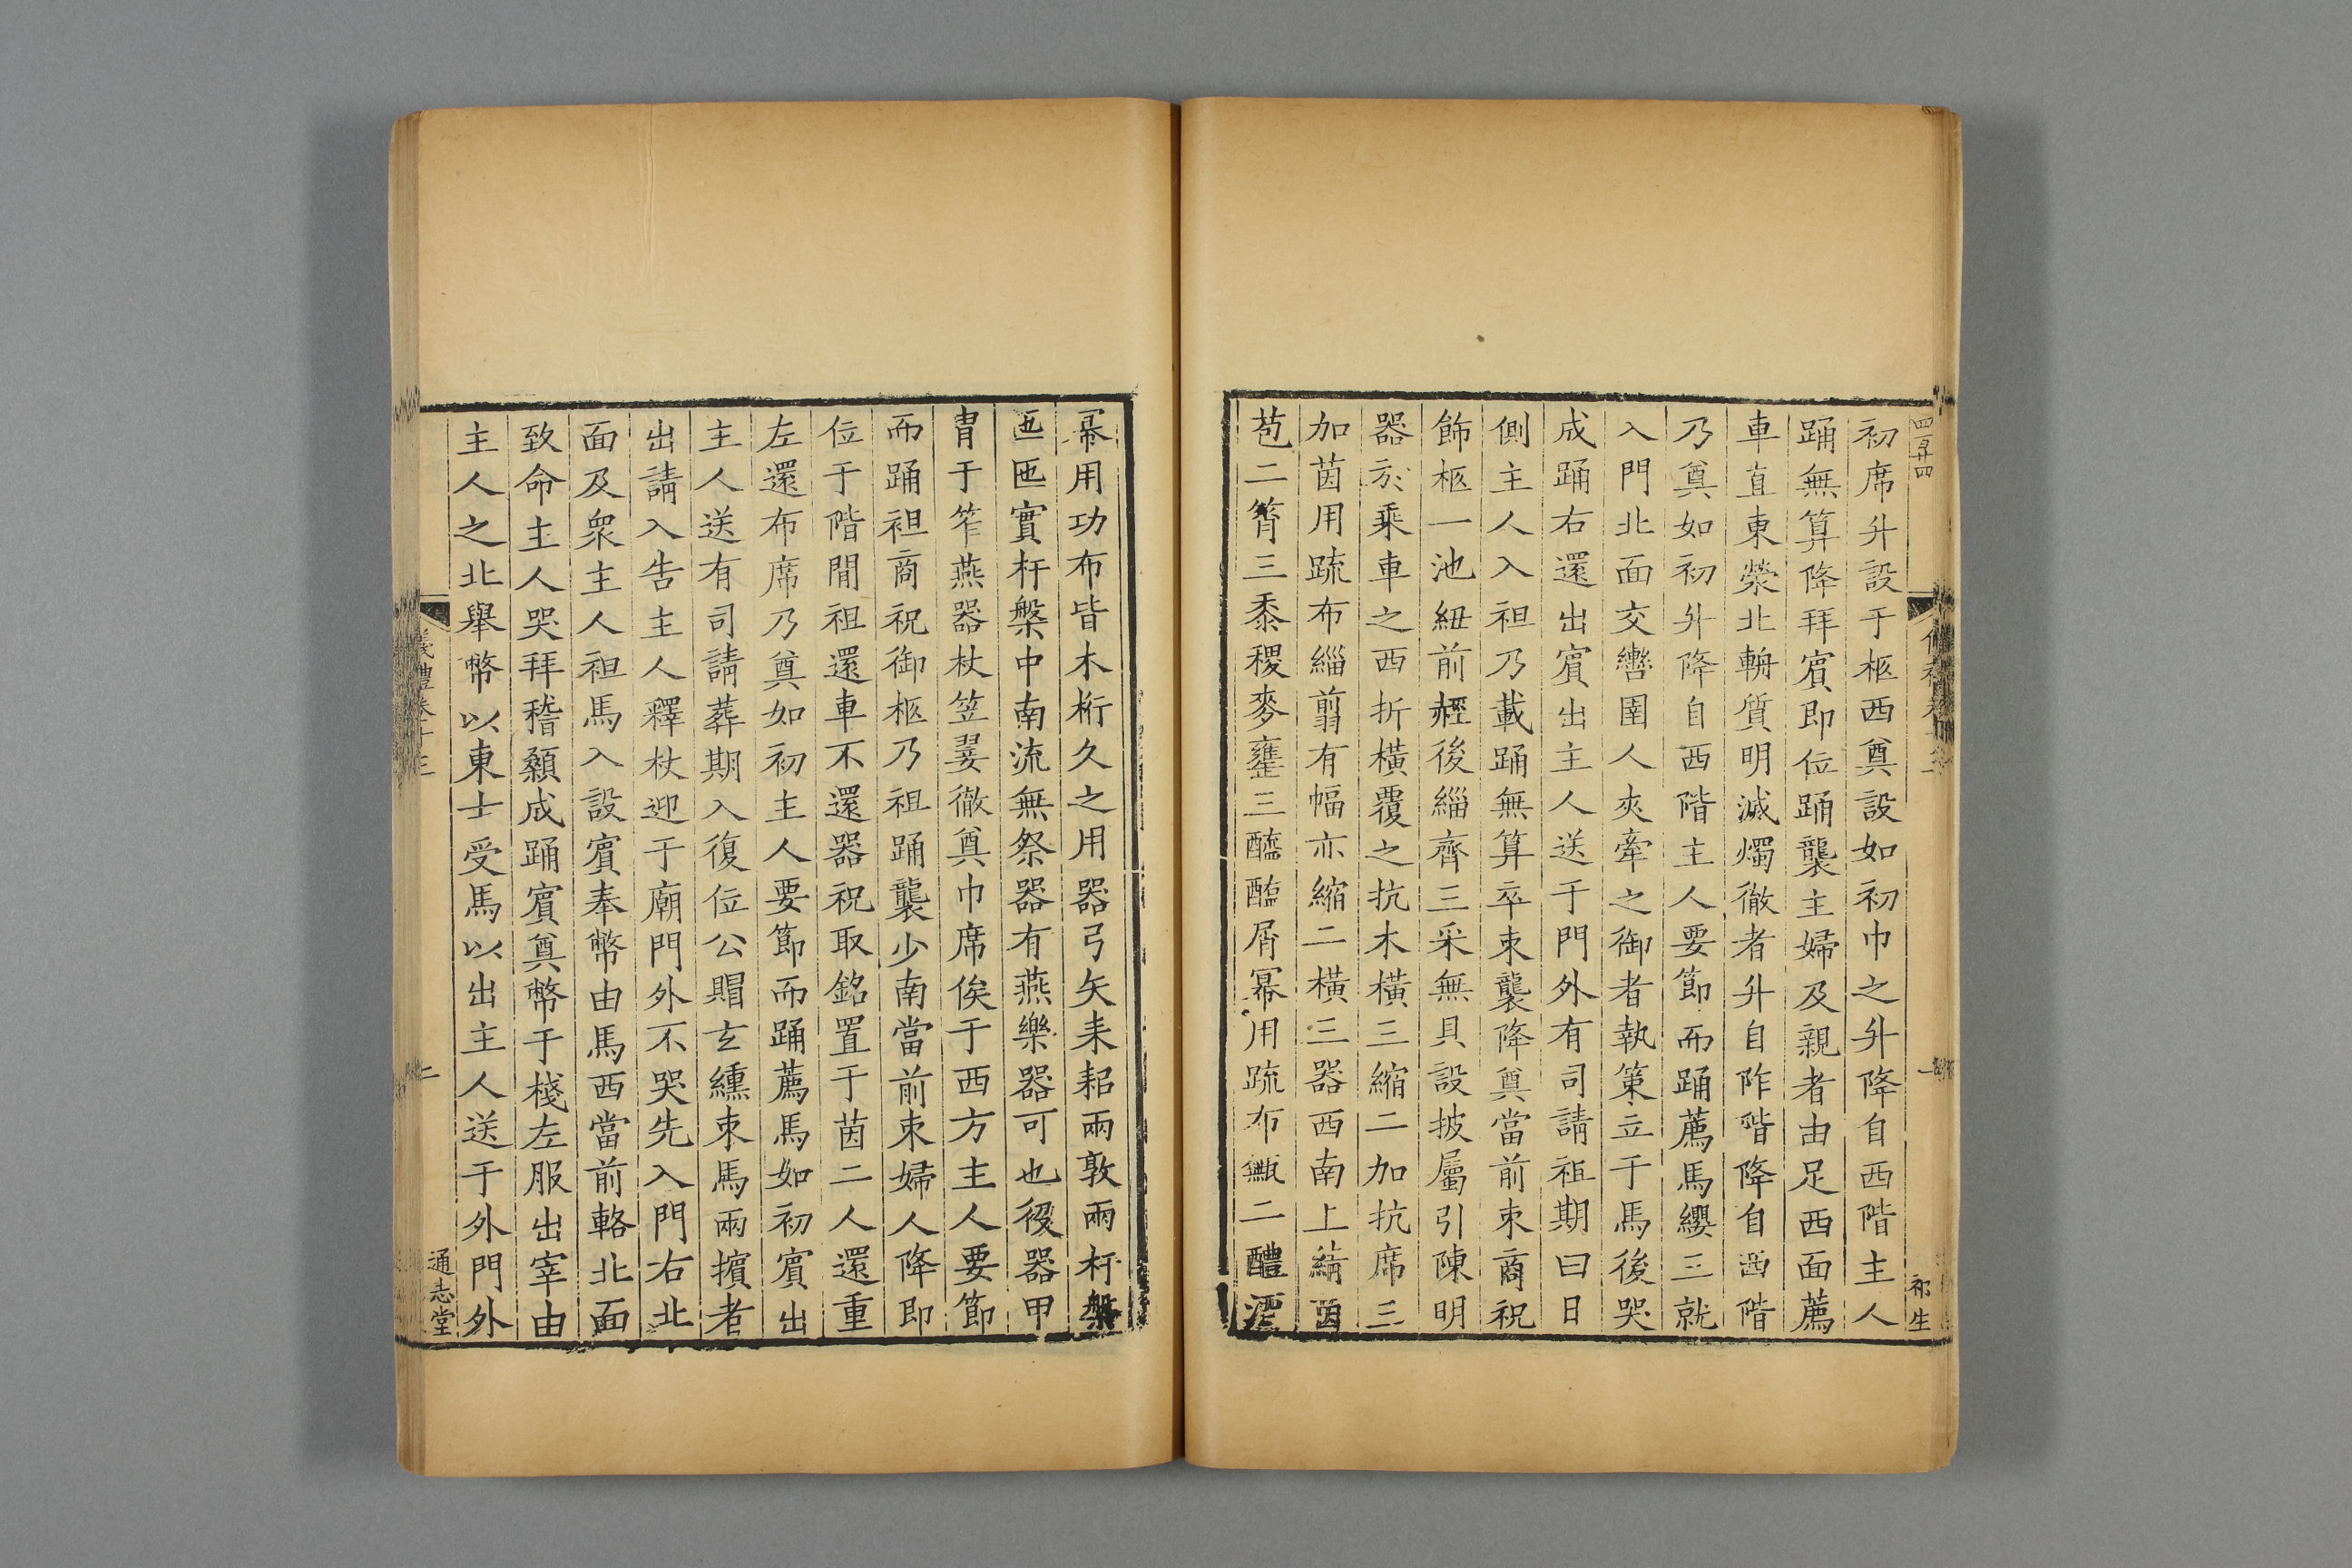 初席升設于柩西奠設如初巾之升降自西階主人
踊無算降拜賔即位踊襲主婦及親者由足西面薦
車直東榮北輈質明滅燭徹者升自阼階降自西階
乃奠如初升降自西階主人要節而踊薦馬纓三就
入門北面交轡圉人夾牽之御者執策立于馬後哭
成踊右還出賔出主人送于門外有司請祖期曰日
側主人入袒乃載踊無算卒束襲降奠當前束商祝
飾柩一池紐前䞓後緇齊三采無貝設披屬引陳明
器於乘車之西折橫覆之抗木橫三縮二加抗席三
加茵用疏布緇翦有幅亦縮二橫三器西南上綪茵
苞二筲三黍稷麥罋三醯醢屑冪用疏布甒二醴酒
冪用功布皆木桁久之用器弓矢耒耜兩敦兩杅槃
匜匜實杅槃中南流無祭器有燕樂器可也役器甲
冑于笮燕器杖笠翣徹奠巾席俟于西方主人要節
而踊袒商祝御柩乃祖踊襲少南當前束婦人降即
位于階閒祖還車不還器祝取銘置于茵二人還重
左還布席乃奠如初主人要節而踊薦馬如初賔出
主人送有司請葬期入復位公賵玄纁束馬兩擯者
出請入告主人釋杖迎于廟門外不哭先入門右北
面及衆主人袒馬入設賔奉幣由馬西當前輅北面
致命主人哭拜稽顙成踊賔奠幣于棧左服出宰由
主人之北舉幣以東士受馬以出主人送于外門外
通志堂